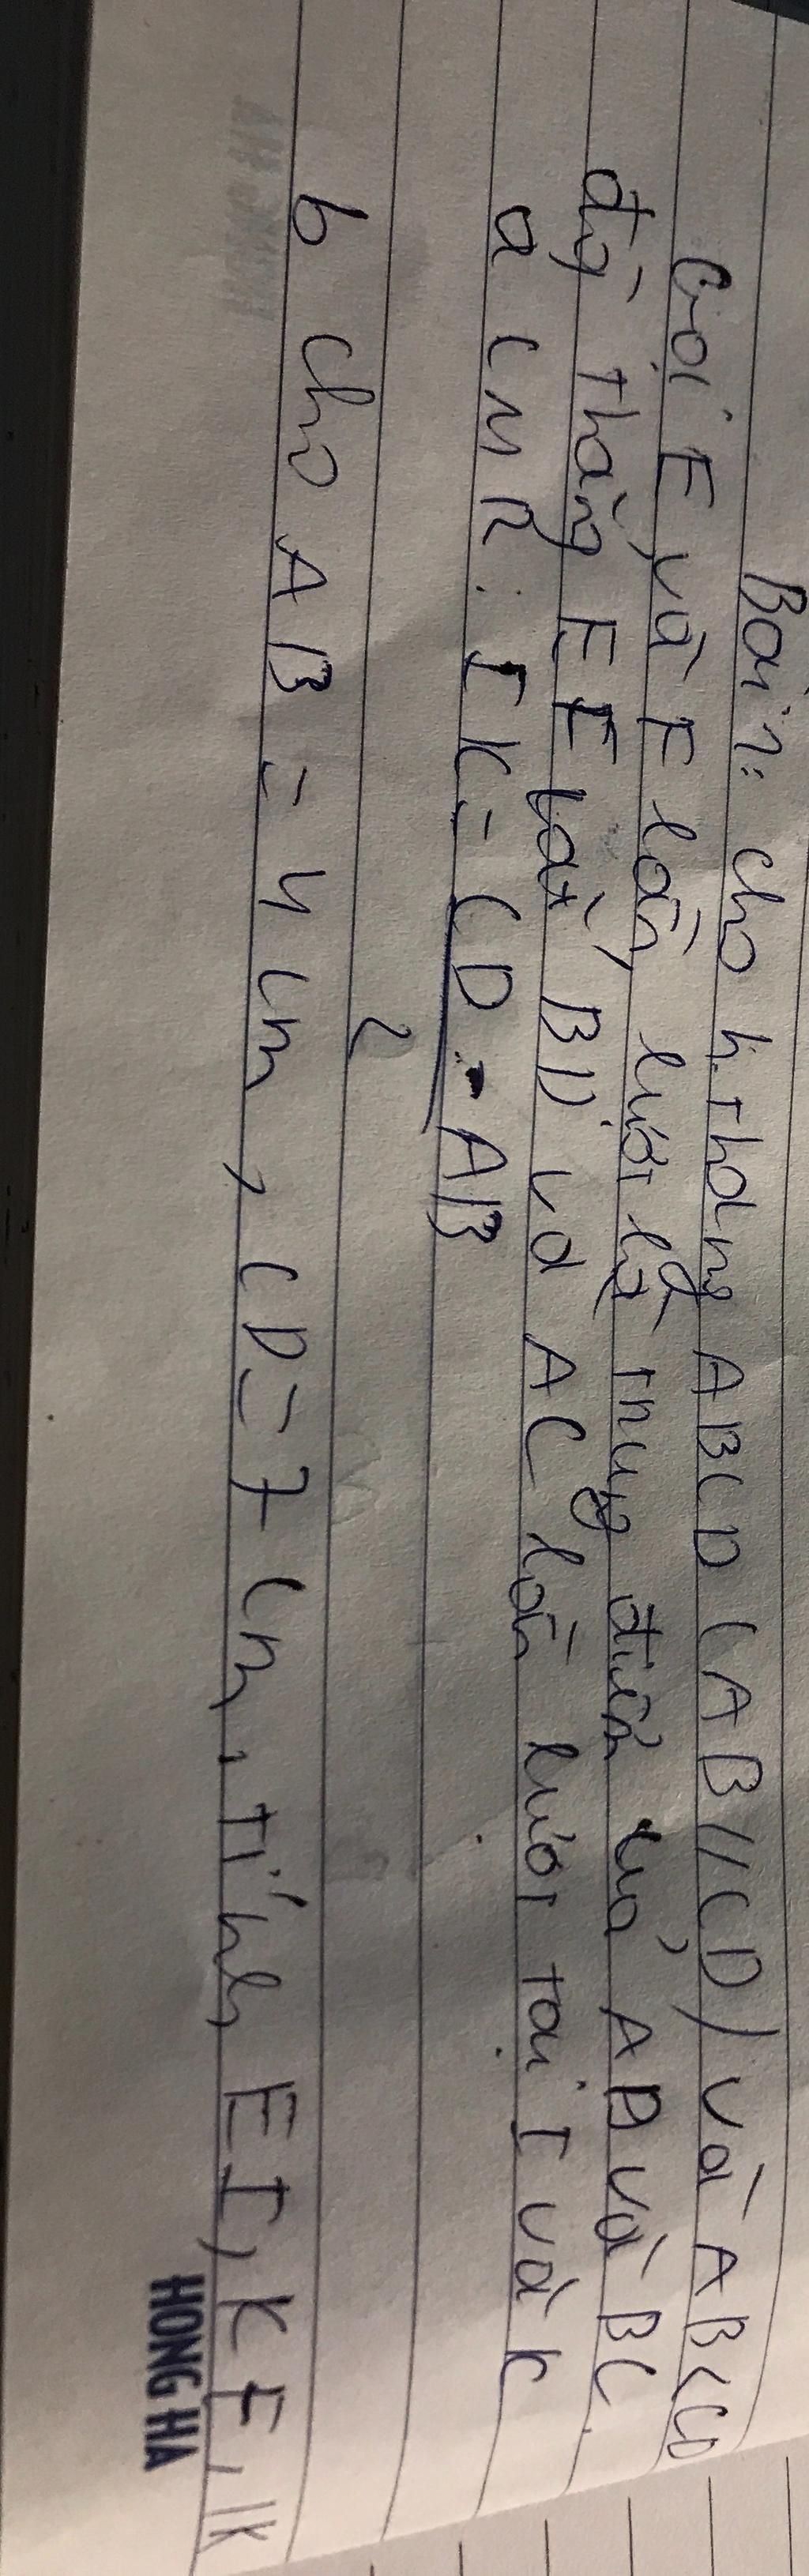 Bài 1: cho h.thang ABCD (AB//CD) và AB<CD
Gọi E và F lần lượt là trung điểm của AD và BC.
đg thẳng EF cắt BD và AC lần lượt tại I và K
a CMR: IK = CD - AB
2
b cho AB = 4 cm, CD = 7 cm. tính EI, KF, IK
HONG HA